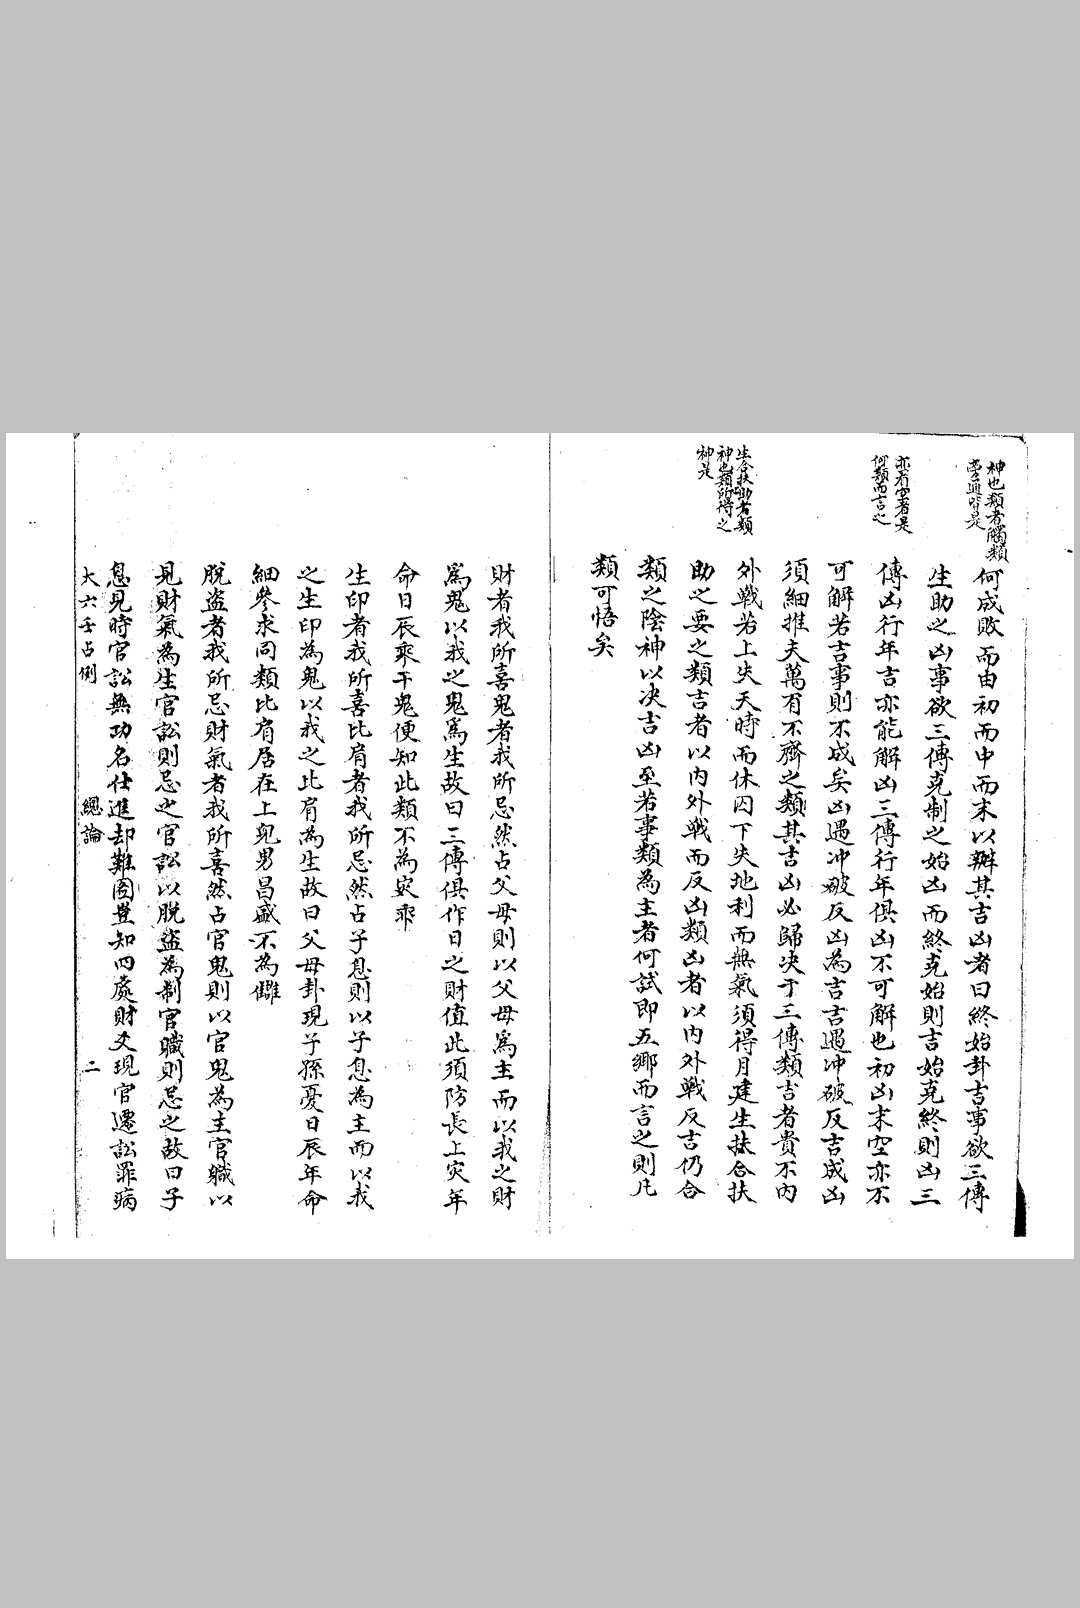 神也類者觸類
而興皆是
亦有空者是
何類而言之
生合扶助者類
神也類所得之
神是
何成敗而由初而中而末以辦其吉凶者曰終始卦吉事欲三傳
生助之凶事欲三傳克制之始凶而終克始則吉始克終則凶三
傳凶行年吉亦能解凶三傳行年俱凶不可解也初凶末空亦不
可解若吉事則不成矣凶遇冲破反凶為吉吉遇冲破反吉成凶
須細推夫萬有不齊之類其吉凶必歸决于三傳類吉者貴不內
外戰若上失天時而休囚下失地利而無氣須得月建生扶合扶
助之要之類吉者以內外戰而反凶類凶者以內外戰反吉仍合
類之陰神以决吉凶至若事類為主者何試即五鄉而言之則凡
類可悟矣
財者我所喜鬼者我所忌然占父母則以父母為主而以我之財
為鬼以我之鬼為生故曰三傳俱作日之財值此須防長上灾年
命日辰乘干鬼便知此類不為灾乖
生印者我所喜比肩者我所忌然占子息則以子息為主而以我
之生印為鬼以我之比肩為生故曰父母卦現子孫憂日辰年命
細參求同類比肩居在上兒男昌盛不為讎
脫盗者我所忌財氣者我所喜然占官鬼則以官鬼為主官職以
見財氣為生官訟則忌之官訟以脫盗為制官職則忌之故曰子
息見時官訟無功名仕進却難圖豈知四處財爻現官遷訟罪病
大六壬占例
總論
二